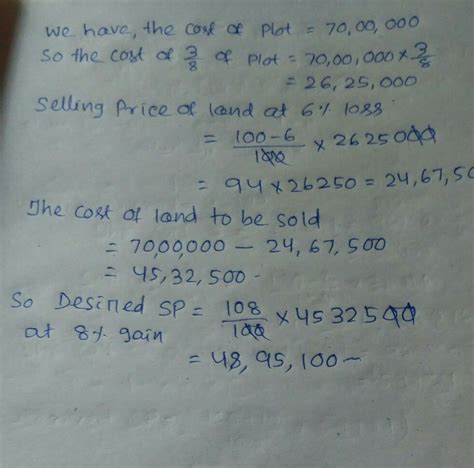 we have, the cost of Plot = 70,00,000
So the cost of 3/8 of Plot = 70,00,000 × 3/8
= 26,25,000
Selling Price of land at 6% loss
= 100-6/100 × 2625000
= 94 × 26250 = 24,67,50
The cost of land to be sold
= 70,00,000 - 24,67,500
= 45,32,500 -
So Desired SP = 108/100 × 4532500
at 8% gain
= 48,95,100 -